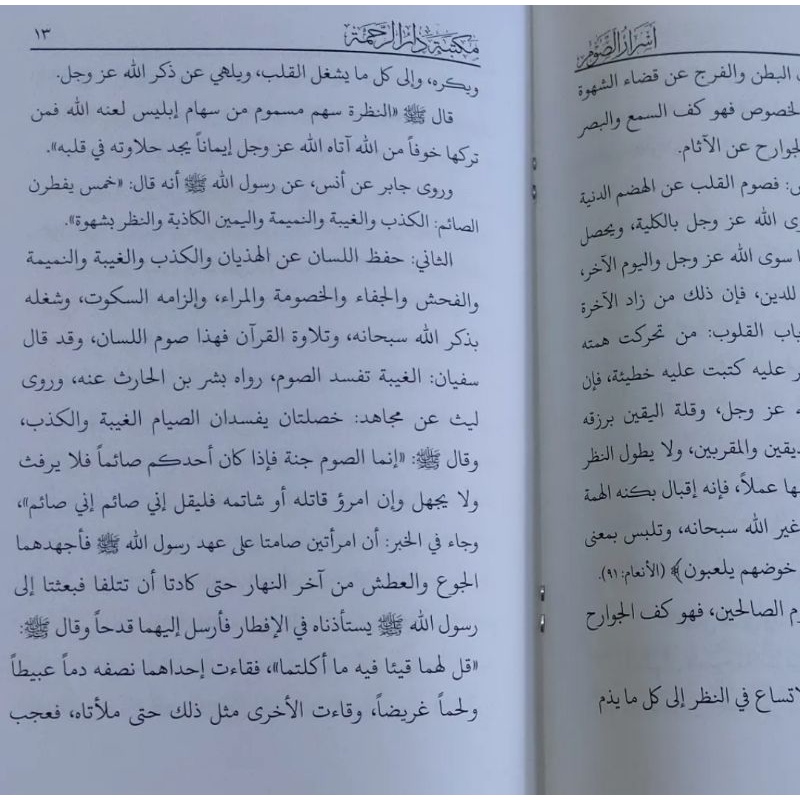 أسرار الصوم
البطن والفرج عن قضاء الشهوة
الخصوص فهو كف السمع والبصر
الجوارح عن الآثام.
فصوم القلب عن الهضم الدنية
الله عز وجل بالكلية، ويحصل
سوى الله عز وجل واليوم الآخر،
للدين، فإن ذلك من زاد الآخرة
القلوب: من تحركت همته
عليه كتبت عليه خطيئة، فإن
عز وجل، وقلة اليقين برزقه
والمقربين، ولا يطول النظر
عملاً، فإنه إقبال بكنه الهمة
غير الله سبحانه، وتلبس بمعنى
خوضهم يلعبون﴾ (الأنعام: ٩١).
الصالحين، فهو كف الجوارح
في النظر إلى كل ما يذم
مكتبة دار الرحمة
١٣
ويكره، وإلى كل ما يشغل القلب، ويلهي عن ذكر الله عز وجل.
قال ﷺ «النظرة سهم مسموم من سهام إبليس لعنه الله فمن
تركها خوفاً من الله آتاه الله عز وجل إيماناً يجد حلاوته في قلبه».
وروى جابر عن أنس، عن رسول الله ﷺ أنه قال: «خمس يفطرن
الصائم: الكذب والغيبة والنميمة واليمين الكاذبة والنظر بشهوة».
الثاني: حفظ اللسان عن الهذيان والكذب والغيبة والنميمة
والفحش والجفاء والخصومة والمراء، وإلزامه السكوت، وشغله
بذكر الله سبحانه، وتلاوة القرآن فهذا صوم اللسان، وقد قال
سفيان: الغيبة تفسد الصوم، رواه بشر بن الحارث عنه، وروى
ليث عن مجاهد: خصلتان يفسدان الصيام الغيبة والكذب،
وقال ﷺ: «إنما الصوم جنة فإذا كان أحدكم صائماً فلا يرفث
ولا يجهل وإن امرؤ قاتله أو شاتمه فليقل إني صائم إني صائم»،
وجاء في الخبر: أن امرأتين صامتا على عهد رسول الله ﷺ فأجهدهما
الجوع والعطش من آخر النهار حتى كادتا أن تتلفا فبعثتا إلى
رسول الله ﷺ يستأذناه في الإفطار فأرسل إليهما قدحاً وقال ﷺ:
«قل لهما قيئا فيه ما أكلتما»، فقاءت إحداهما نصفه دماً عبيطاً
ولحماً غريضاً، وقاءت الأخرى مثل ذلك حتى ملأتاه، فعجب